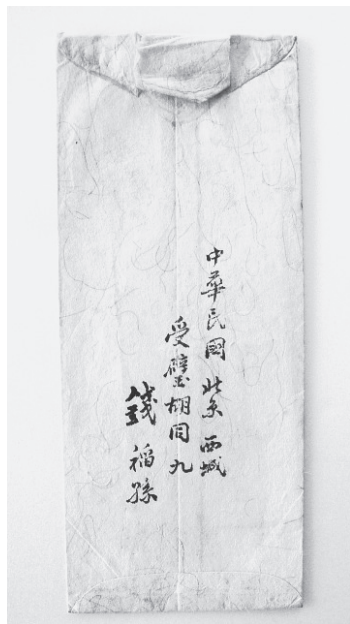 中華民國 北京 西城
受璧胡同九
錢稻孫